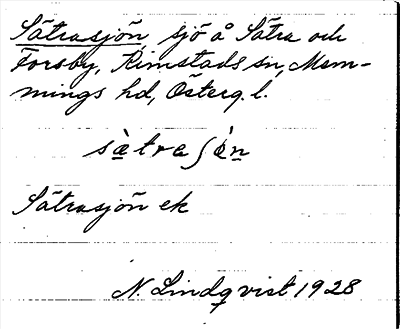 Sätrasjön sjö å Sätra och
Forsby, Rimstads sn, Mem-
mings hd, Österg. l.
sätraʃön
Sätrasjön ek
N. Lindqvist 1928